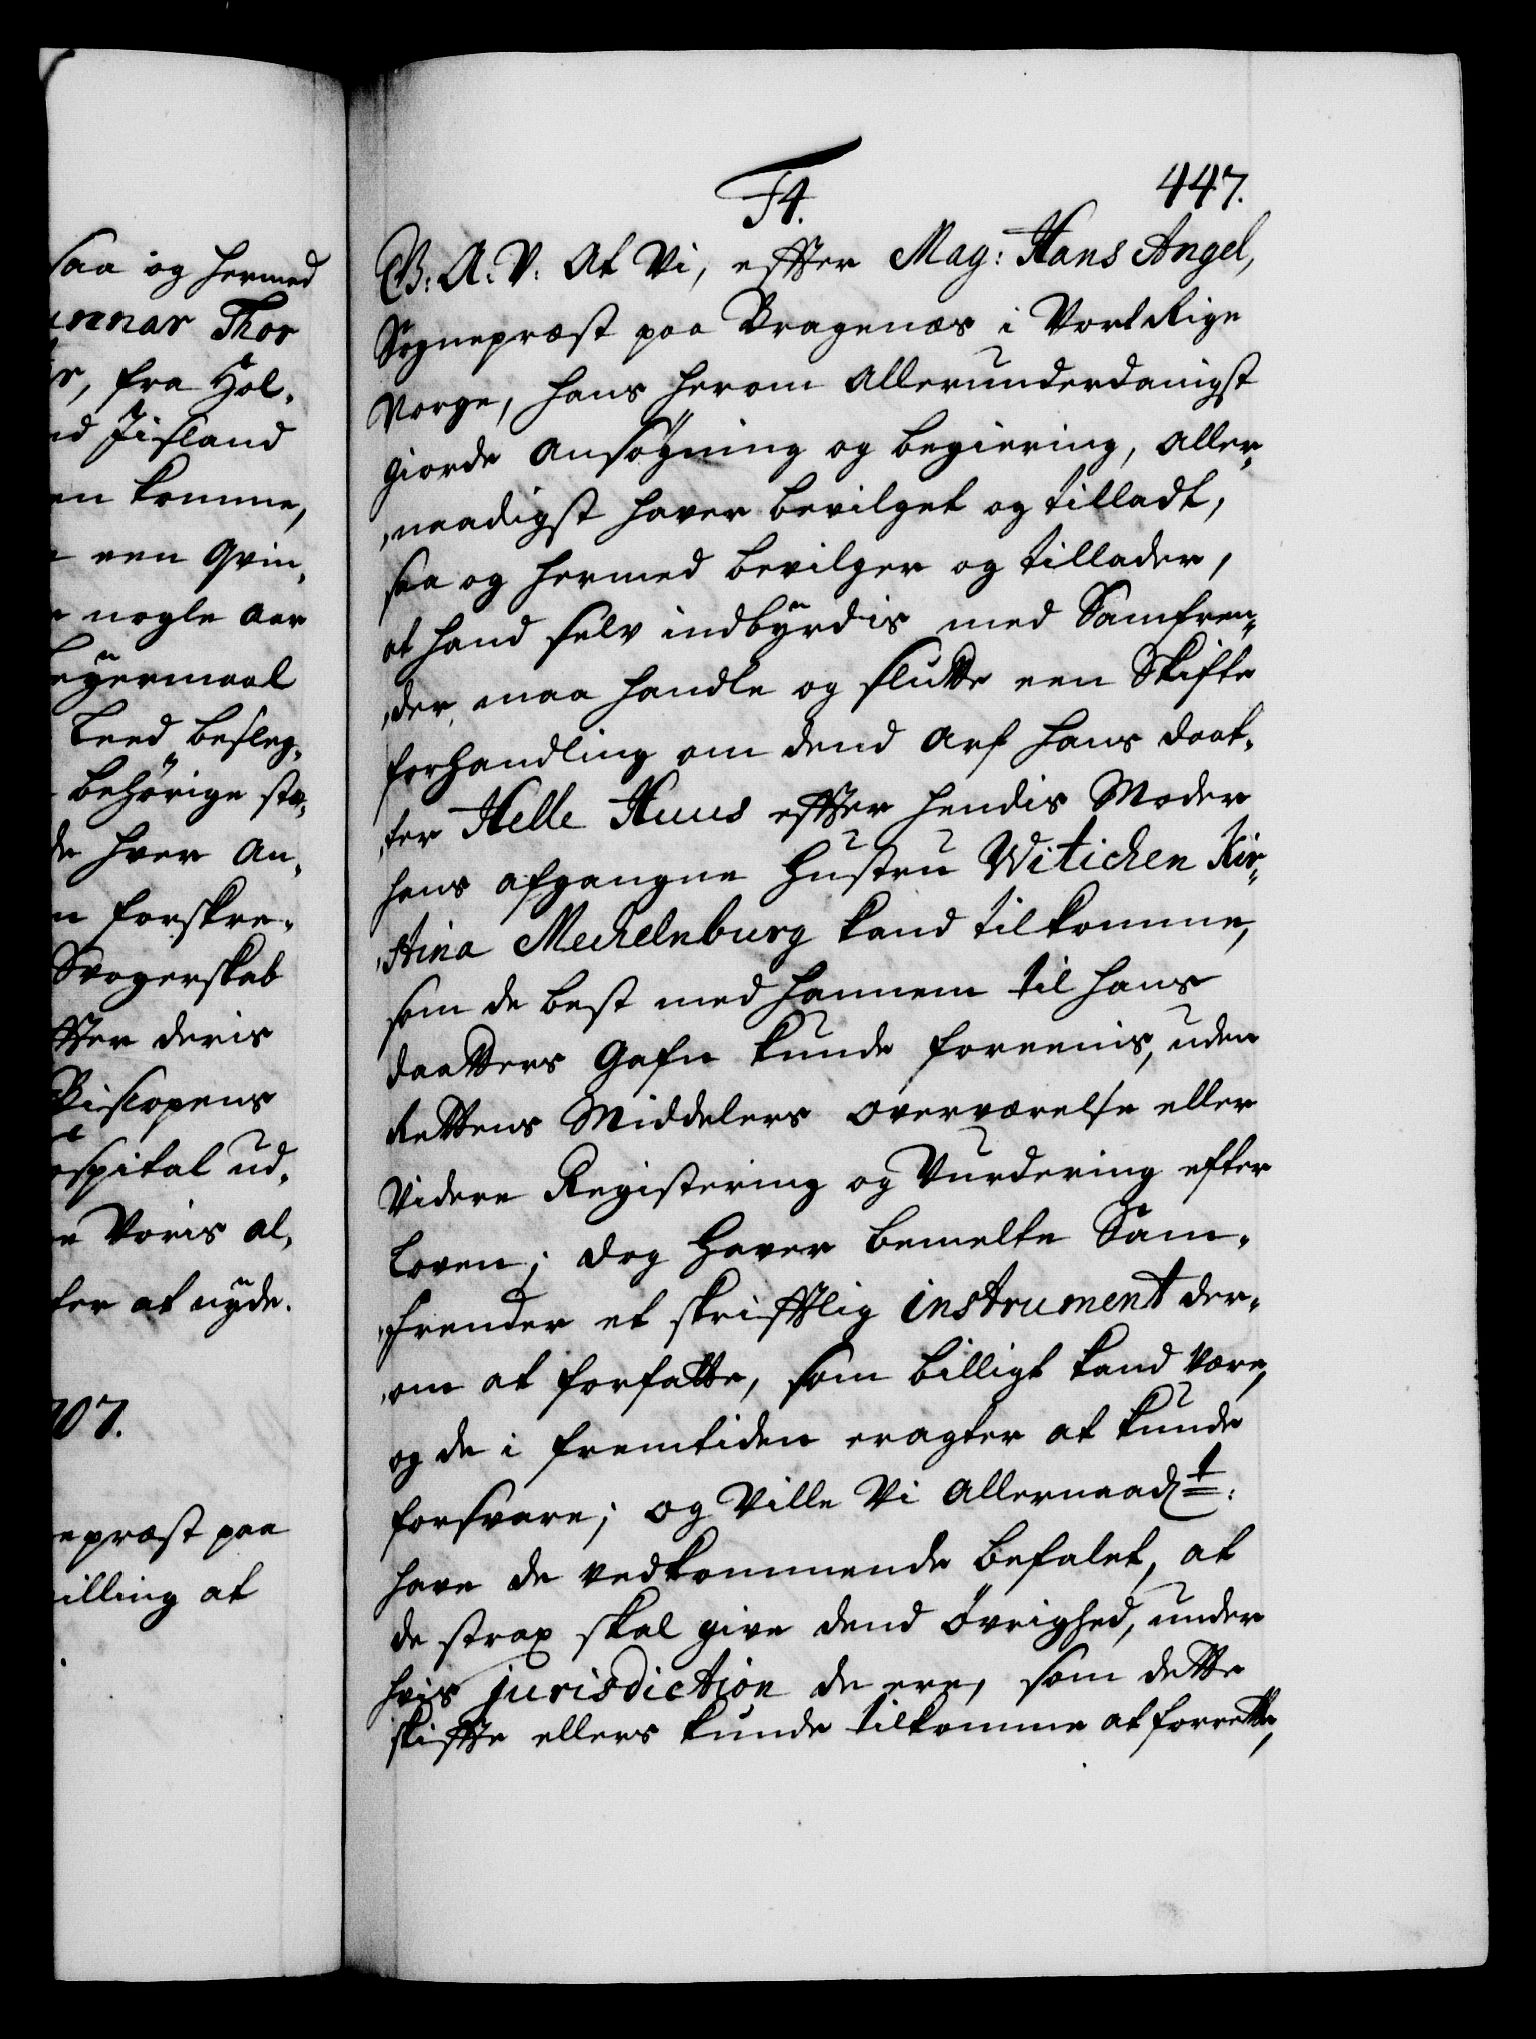 saa og hermed
unnar Thor
r, fra Hol-
nd Jisland
en komme,
een Qvin-
nogle aar
eyermaal
Leed besleg-
behörige stæ-
de hver an-
n forskre-
Svogerskab
ffter deris
Biscopens
ospital ud-
e Voris al-
ter at nyde.
707.
nepræst paa
villing at
F4.
447.
G: A: V: At Vi, effter Mag: Hans Angel,
Sognepræst paa Bragenæs i Vort Rige
Norge, hans herom allerunderdanigst
giorde ansøgning og begiering, aller-
naadigst haver bevilget og tilladt,
saa og hermed bevilger og tillader,
at hand selv indbyrdis med Samfren-
der, maa handle og slutte een Skifte
forhandling om dend Arf hans daat-
ter Helle Huus effter hendis Moder
hans afgangne Hustru Witichen Kir-
stina Mechelnburg kand tilkomme,
som de best med hannem til hans
daatters Gafn kunde foreenis, uden
Rettens Middelers overværelse eller
Videre Registering og Vurdering efter
Loven; dog haver bemelte Sam-
frender et skrifftlig instrument der-
om at forfatte, som billigt kand være,
og de i fremtiden eragter at kunde
forsvare; og Ville Vi Allernaad:t:
have de vedkommende befalet, at
de strax skal give dend Øvrighed, under
hvis jurisdiction de ere, som dette
skiffte ellers kunde tilkomme at forrette,